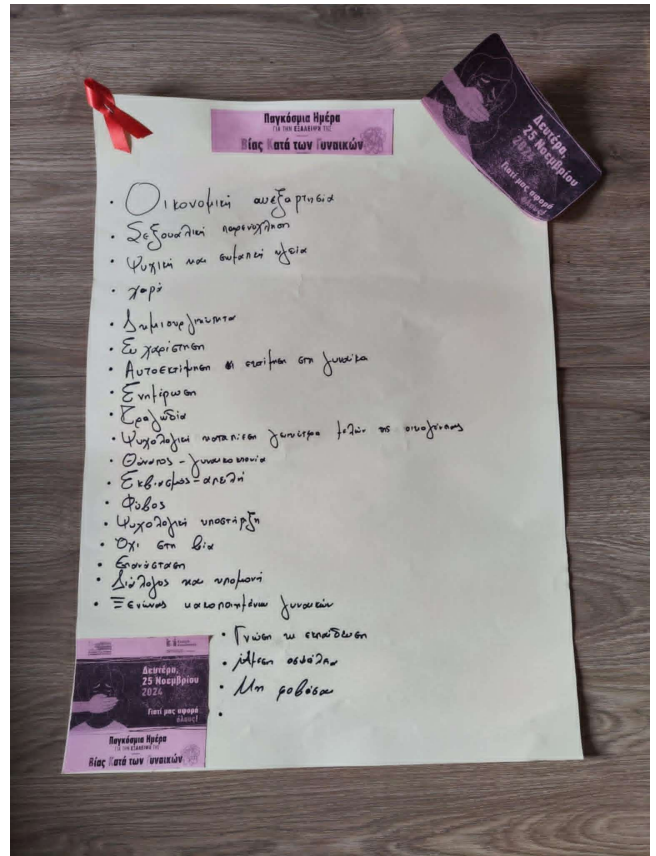 Παγκόσμια Ημέρα
ΓΙΑ ΤΗΝ ΕΞΑΛΕΙΨΗ ΤΗΣ
Βίας Κατά των Γυναικών
Δευτέρα,
25 Νοεμβρίου
2024
Γιατί μας αφορά
όλους!
• Οικονομική ανεξαρτησία
• Σεξουαλική παρενόχληση
• Ψυχική και σωματική υγεία
• χαρά
• Δημιουργικότητα
• Ευχαρίστηση
• Αυτοεκτίμηση εκτίμηση στη γυναίκα
• Ενημέρωση
• Τραγωδία
• Ψυχολογική καταπίεση μελών της οικογένειας
• Θάνατος - γυναικοκτονία
• Εκβιασμός - απειλή
• Φόβος
• Ψυχολογική υποστήριξη
• Όχι στη βία
• Επανάσταση
• Διάλογος και υπομονή
• Ξενώνας κακοποιημένων γυναικών
• Γνώση κι εκπαίδευση
• Άμεση ασφάλεια
• Μη φοβάσαι
•
Δευτέρα,
25 Νοεμβρίου
2024
Γιατί μας αφορά
όλους!
Παγκόσμια Ημέρα
ΓΙΑ ΤΗΝ ΕΞΑΛΕΙΨΗ ΤΗΣ
Βίας Κατά των Γυναικών